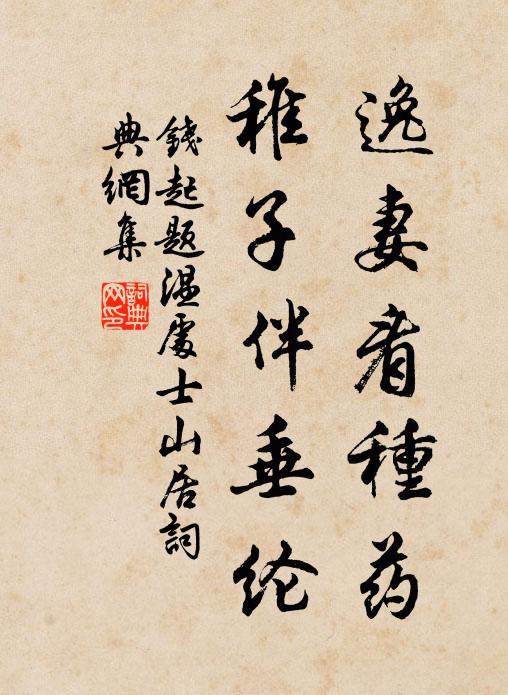 逸妻看種药
稚子伴垂纶
錢起题温處士山居詞
典網集
詞典
网印